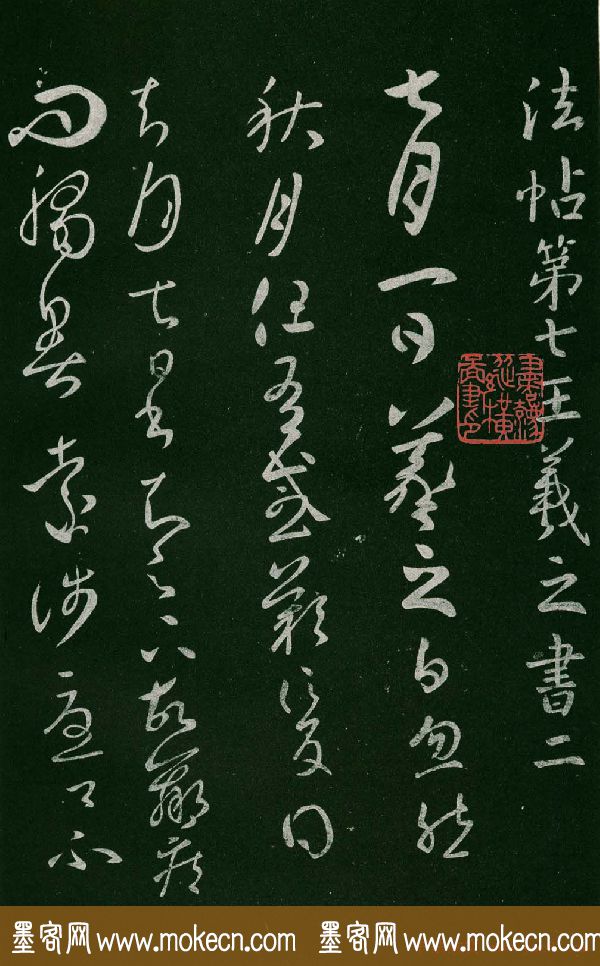 法帖第七王羲之書二
七月一日羲之白忽然
秋月但有感歎信反得
去月七日書知足下故羸疾
問觸暑遠涉憂卿不
墨客网 www.mokecn.com 墨客网 www.mokecn.com